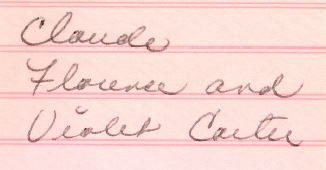 Claude
Florence and
Violet Carter